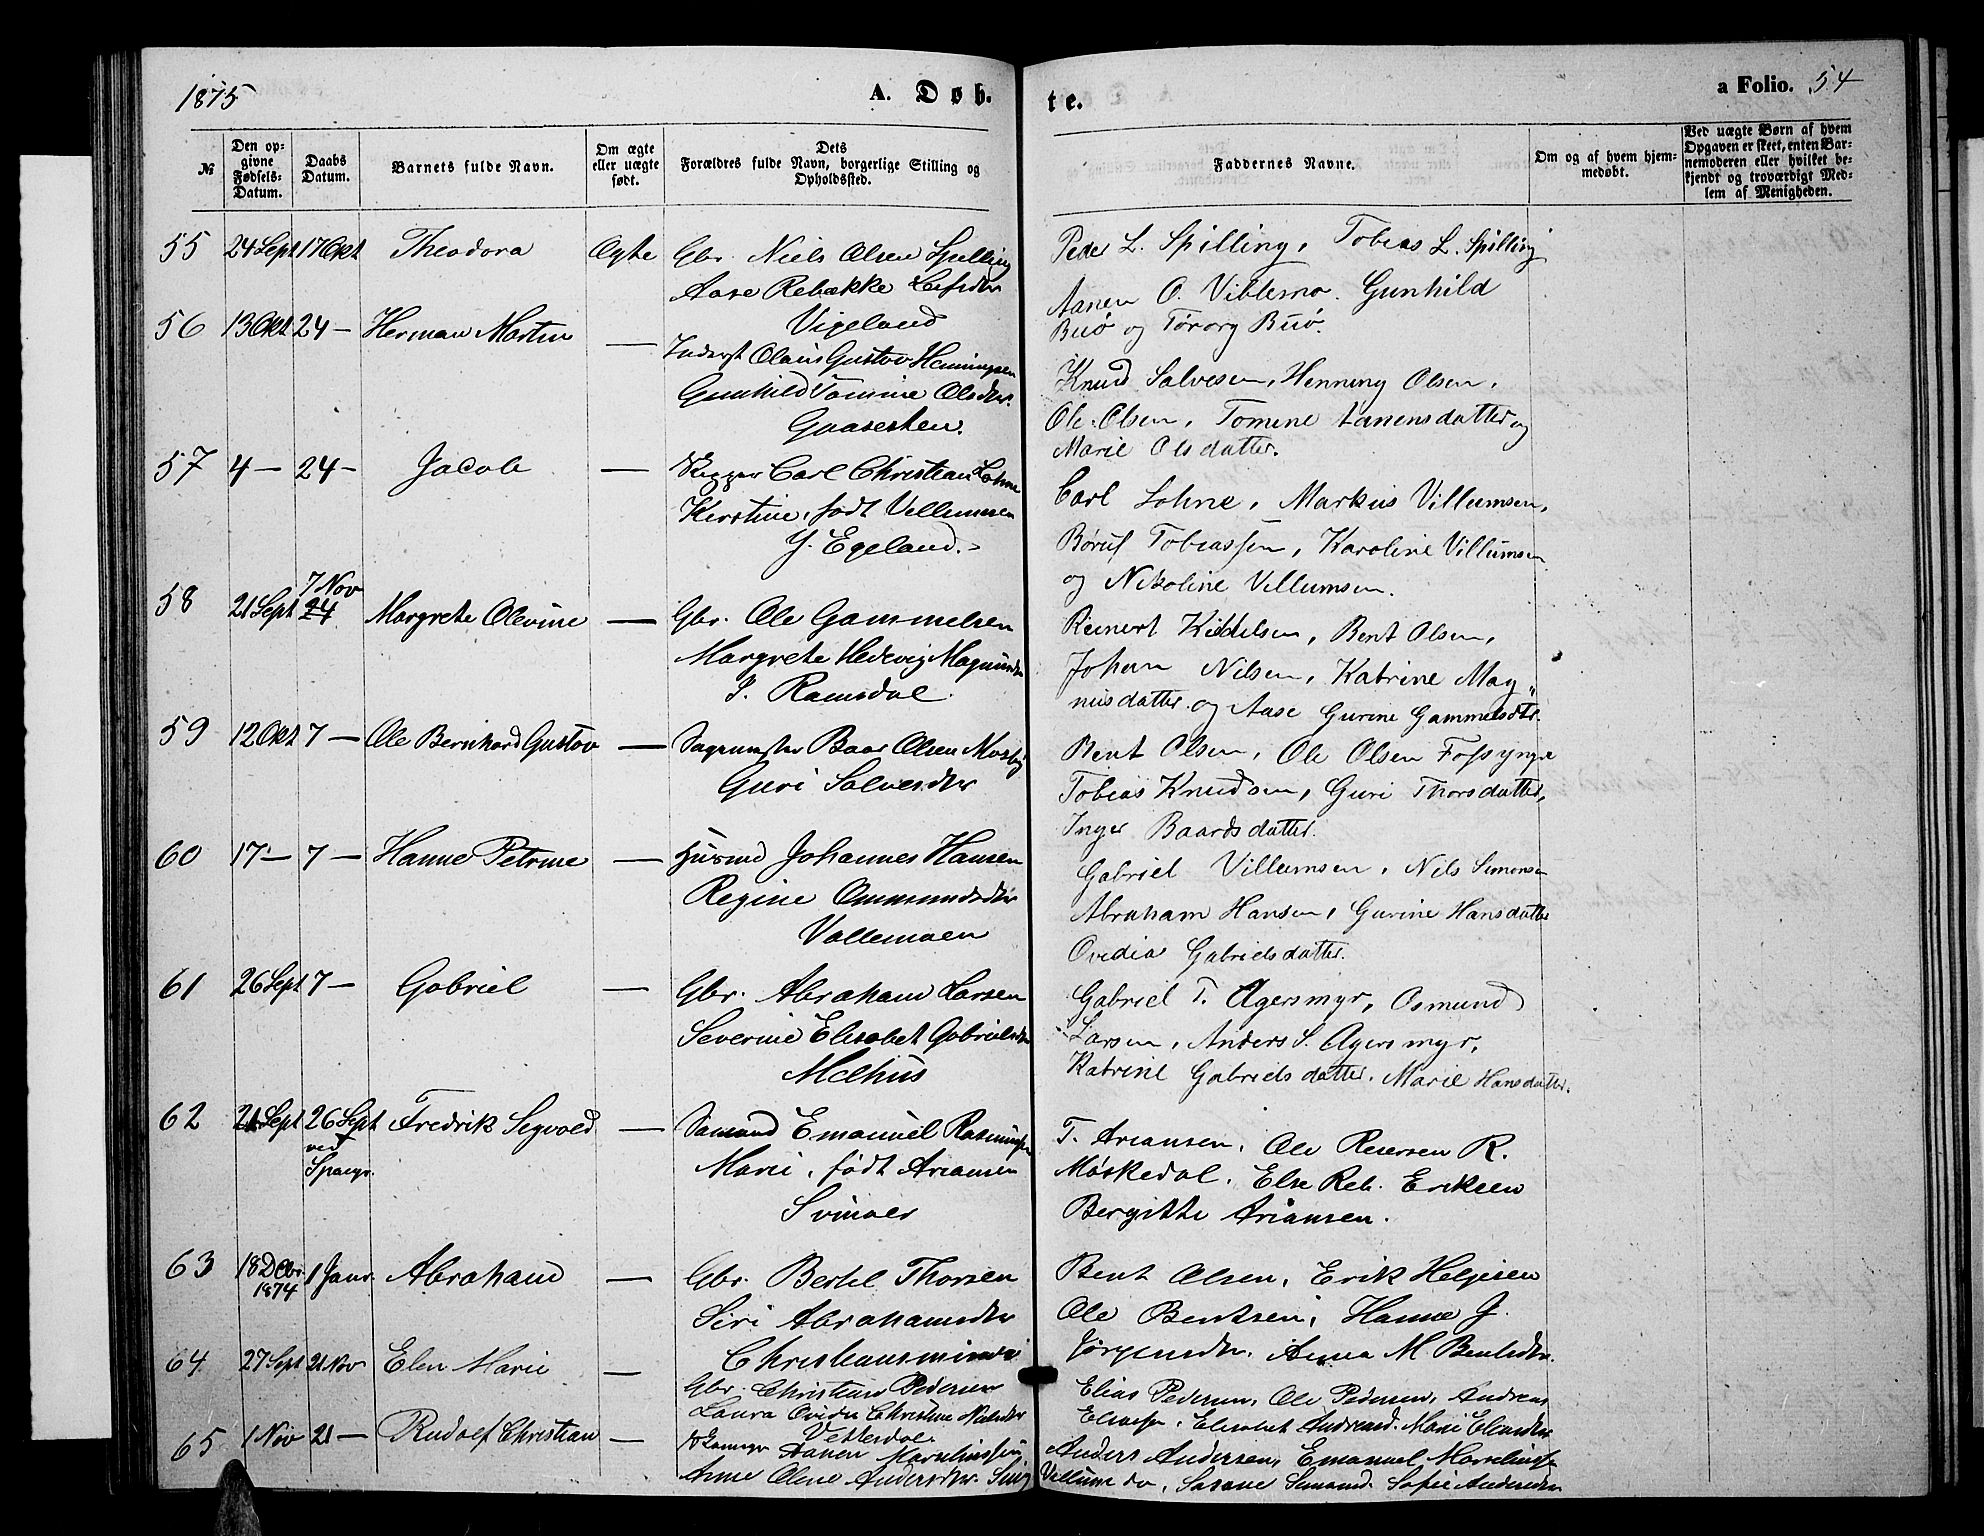 1875
A. Døb-
te.
a Folio. 54
№
Den op-
givne
Fødsels-
Datum.
Daabs
Datum.
Barnets fulde Navn.
Om ægte
eller uægte
født.
Dets
Forældres fulde Navn, borgerlige Stilling og
Opholdssted.
Faddernes Navne.
Om og af hvem hjem-
medøbt.
Ved uægte Børn af hvem
Opgaven er skeet, enten Bar-
nemoderen eller hvilket be-
kjendt og troværdigt Med-
lem af Menigheden.
55 24 Sept 17 Okt Theodora Ægte Gbr. Niels Olsen Spilling
Aase Rebække Leifsdtr
Vigeland
Peder L. Spilling, Tobias L. Spilling
Aanen O. Viblemo. Gunhild
Buø og Torborg Buø.
56 13 Okt 24 — Herman Martin —
Inderst Olaus Gustav Henningsen
Gunhild Tomine Olsdtr.
Gaasesten.
Knud Salvesen, Henning Olsen,
Ole Olsen, Tomine Aanensdatter og
Marie Olsdatter.
57 4 — 24 — Jacob — Skipper Carl Christian Lohne
Kerstine, født Villumsen
Y. Egeland.
Carl Lohne, Markus Villumsen,
Børuf Tobiassen, Karoline Villumsen
og Nikoline Villumsen.
58 21 Sept 24 7 Nov Margrete Olevine — Gbr. Ole Gammelsen
Margrete Hedevig Magnusdtr
S. Ramsdal.
Reinert Kiddelsen, Bent Olsen,
Johan Nilsen, Katrine Mag„
nusdatter og Aase Gurine Gammelsdtr.
59 12 Okt 7 — Ole Bernhard Gustav — Sagmester Baar Olsen Mosby
Guri Salvesdtr
Bent Olsen, Ole Olsen Fossyngre
Tobias Knudsen, Guri Thorsdatter,
Inger Baardsdatter.
60 17 — 7 — Hanne Petrine — Husmd Johannes Hansen
Regine Ommundsdtr
Vollemoen
Gabriel Villumsen, Nils Simonsen
Abraham Hansen, Gurine Hansdatter
Ovedia Gabrielsdatter.
61 26 Sept 7 — Gabriel — Gbr. Abraham Larsen
Severine Elisabet Gabrielsdtr
Melhus
Gabriel T. Agersmyr, Osmund
Larsen, Anders S. Agersmyr,
Katrine Gabrielsdatter. Marie Hansdatter.
62 21 Sept 26 Sept ved Spangr. Fredrik Segvald — Sømand Emanuel Rasmussen
Marie, født Ariansen
Svinøer
T. Ariansen, Ole Reiersen R.
Møskedal, Else Reb. Eriksen
Bergitte Ariansen.
63 18 Dcbr. 1874 1 Janr. Abraham — Gbr. Bertel Thorsen
Siri Abrahamsdtr
Christiansminde
Bent Olsen, Erik Helgesen
Ole Bentsen, Hanne J.
Jörgensdtr. Anna M Bentsdtr.
64 27 Sept 21 Nov Elen Marie —
Gbr. Christian Pedersen
Laura Ovidia Christine Nielsdtr
Vetterdal.
Elias Pedersen, Ole Pedersen, Andreas
Eliassn, Elisabet Andreasd. Marie Eliasdtr
65 1 Nov 21 — Rudolf Christian —
Aanen Marselinssen
Anne Oline Andersdtr
Anders Andersen, Emanuel Marselinss
Villum do, Sofie Andersdtr